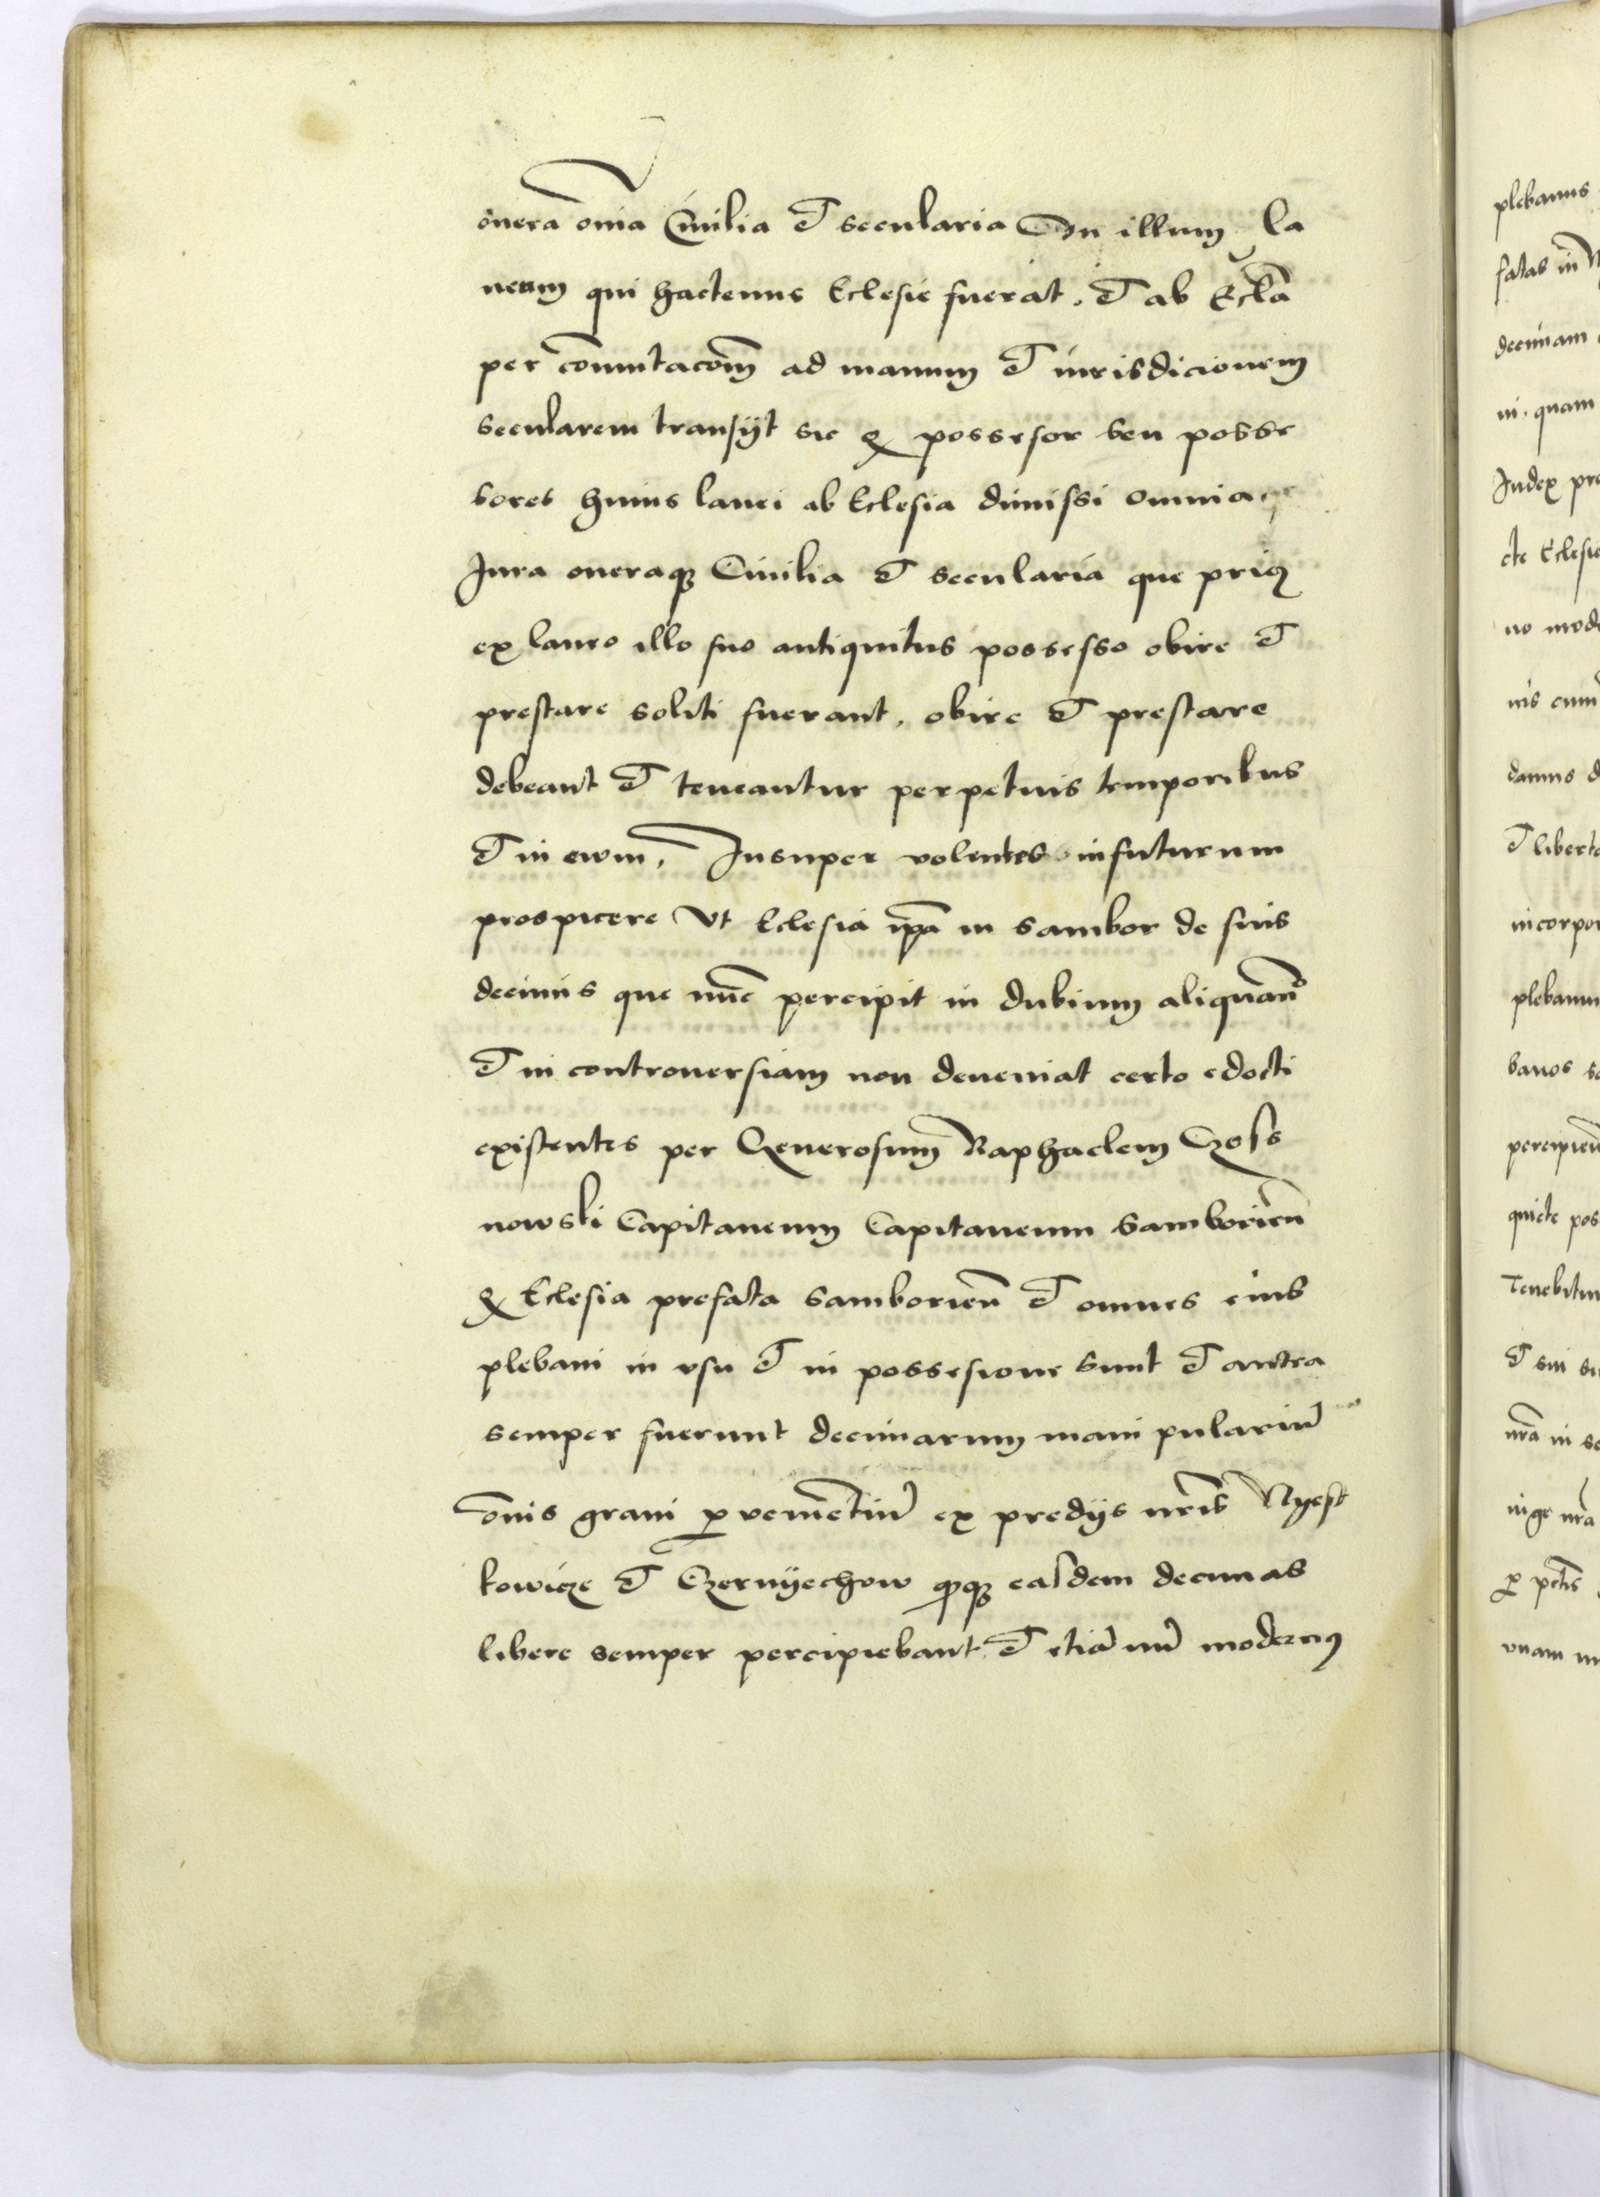 onera o̅nia Ciuilia et secularia In illum la
neum qui hactenus Eclesie fuerat, et ab Eccl̅a
per co̅mutaco̅m ad manum et iurisdicionem
secularem transijt sic q possessor seu posse
sores huius lanei ab Eclesia dimissi omnia
Jura oneraq Ciuilia et secularia que priꝰ
ex laneo illo suo antiquitus possesso obire et
prestare soliti fuerant, obire et prestare
debeant et teneantur perpetuis temporibus
et in ewm, Insuper volentes in futurum
prospicere Vt Eclesia ip̅a in Sambor de suis
decimis que nu̅c percipit in dubium aliqua̅n
et in controuersiam non deueniat certo edocti
existentes per Generosum Raphaelem
nowski Capitaneum Capitaneum Samborien̅
q Eclesia prefata Samborien̅ et omnes eius
plebani in vsu et in possesione sunt et antea
semper fuerunt decimarum mani pulariu̅
o̅nis grani ꝓuenientiu̅ ex predijs nr̅is Nyest
kowicze et Czernyechow easdem decimas
libere semper percipiebant et etia̅ nu̅ modernꝰ
plebanus
fatas in
decimam
ni quam
Judex pre
cte Eclesie
no mode
nis cum
damus d
et liberta
incorpor
plebanu
banos
percipien
quiete pos
Tenebitur
et sui su
nr̅a in se
nr̅a
vnam